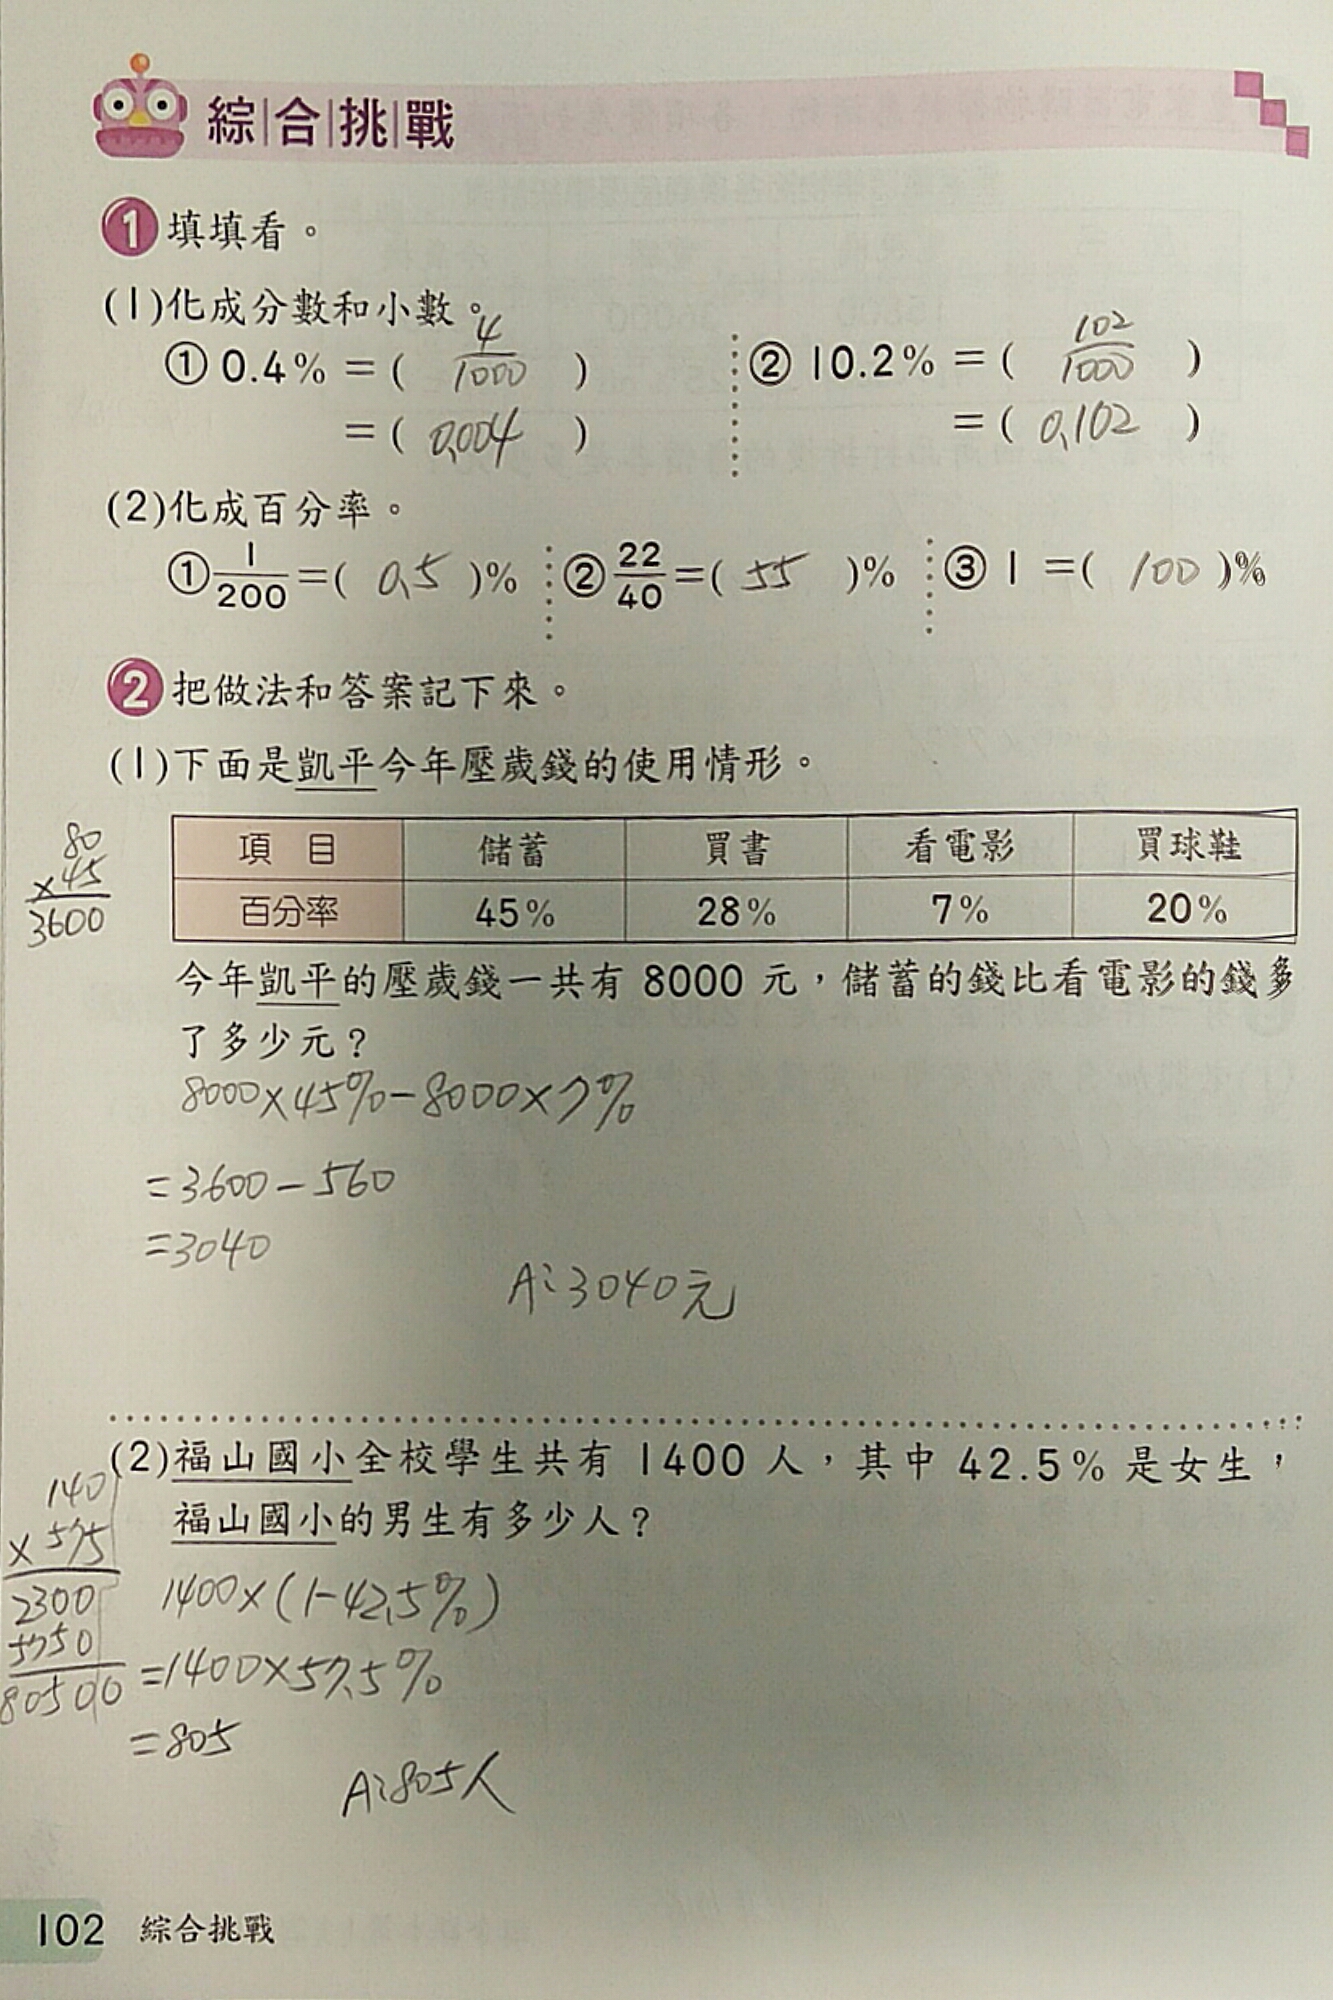 綜合挑戰
1 填填看。
(1)化成分數和小數。
① 0.4% = ( 4/1000 ) ② 10.2% = ( 102/1000 )
= ( 0.004 ) = ( 0.102 )
(2)化成百分率。
① 1/200 = ( 0.5 )% ② 22/40 = ( 55 )% ③ 1 = ( 100 )%
2 把做法和答案記下來。
(1)下面是凱平今年壓歲錢的使用情形。
項目 儲蓄 買書 看電影 買球鞋
百分率 45% 28% 7% 20%
80
×45
3600
今年凱平的壓歲錢一共有 8000 元，儲蓄的錢比看電影的錢多
了多少元？
8000×45%-8000×7%
=3600-560
=3040
A:3040元
(2)福山國小全校學生共有 1400 人，其中 42.5% 是女生，
福山國小的男生有多少人？
140
×575
2300
5750
80500
1400×(1-42.5%)
=1400×57.5%
=805
A:805人
102 綜合挑戰